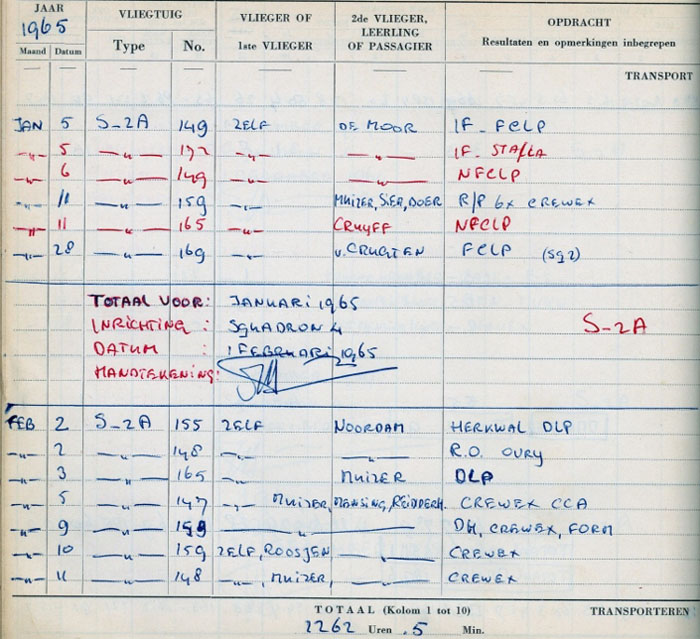 JAAR VLIEGTUIG VLIEGER OF 2de VLIEGER, OPDRACHT
1965 1ste VLIEGER LEERLING Resultaten en opmerkingen inbegrepen
Maand Datum Type No. OF PASSAGIER
TRANSPORT
JAN 5 S-2A 149 ZELF DE MOOR IF - FCLP
-"- 5 -"- 172 -"- -"- IF - STA/LA
-"- 6 -"- 149 -"- -"- NFCLP
-"- 11 -"- 159 -"- MUIZER, SIER, DOER R/P 6x CREWEX
-"- 11 -"- 165 -"- CRUYFF NFCLP
-"- 28 -"- 169 -"- v. CRUCHTEN FCLP (sq2)
TOTAAL VOOR: JANUARI 1965
INRICHTING : SQUADRON 4 S-2A
DATUM : 1 FEBRUARI 1965
HANDTEKENING:
FEB 2 S-2A 155 ZELF NOORDAM HERKWAL DLP
-"- 2 -"- 148 -"- -"- R.O. OURY
-"- 3 -"- 165 -"- MUIZER DLP
-"- 5 -"- 147 -"- MUIZER, MENSING, REIDDERH. CREWEX CCA
-"- 9 -"- 159 -"- DH, CREWEX, FORM
-"- 10 -"- 159 ZELF, ROOSJEN -"- CREWEX
-"- 11 -"- 148 -"-, MUIZER, -"- CREWEX
TOTAAL (Kolom 1 tot 10) TRANSPORTEREN
2262 Uren .5 Min.